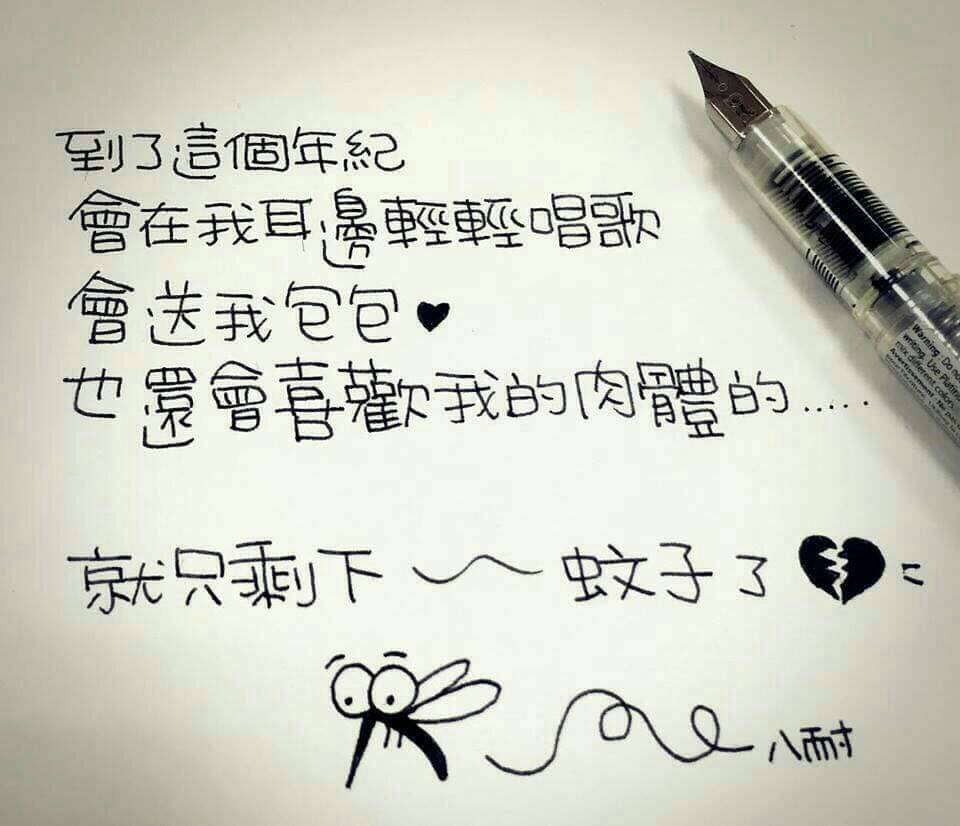 到了這個年紀
會在我耳邊輕輕唱歌
會送我包包♥
也還會喜歡我的肉體的.....
就只剩下～蚊子了💔
八耐
Warning Do no
writing. Use Plati
mix different colors
Avertissement